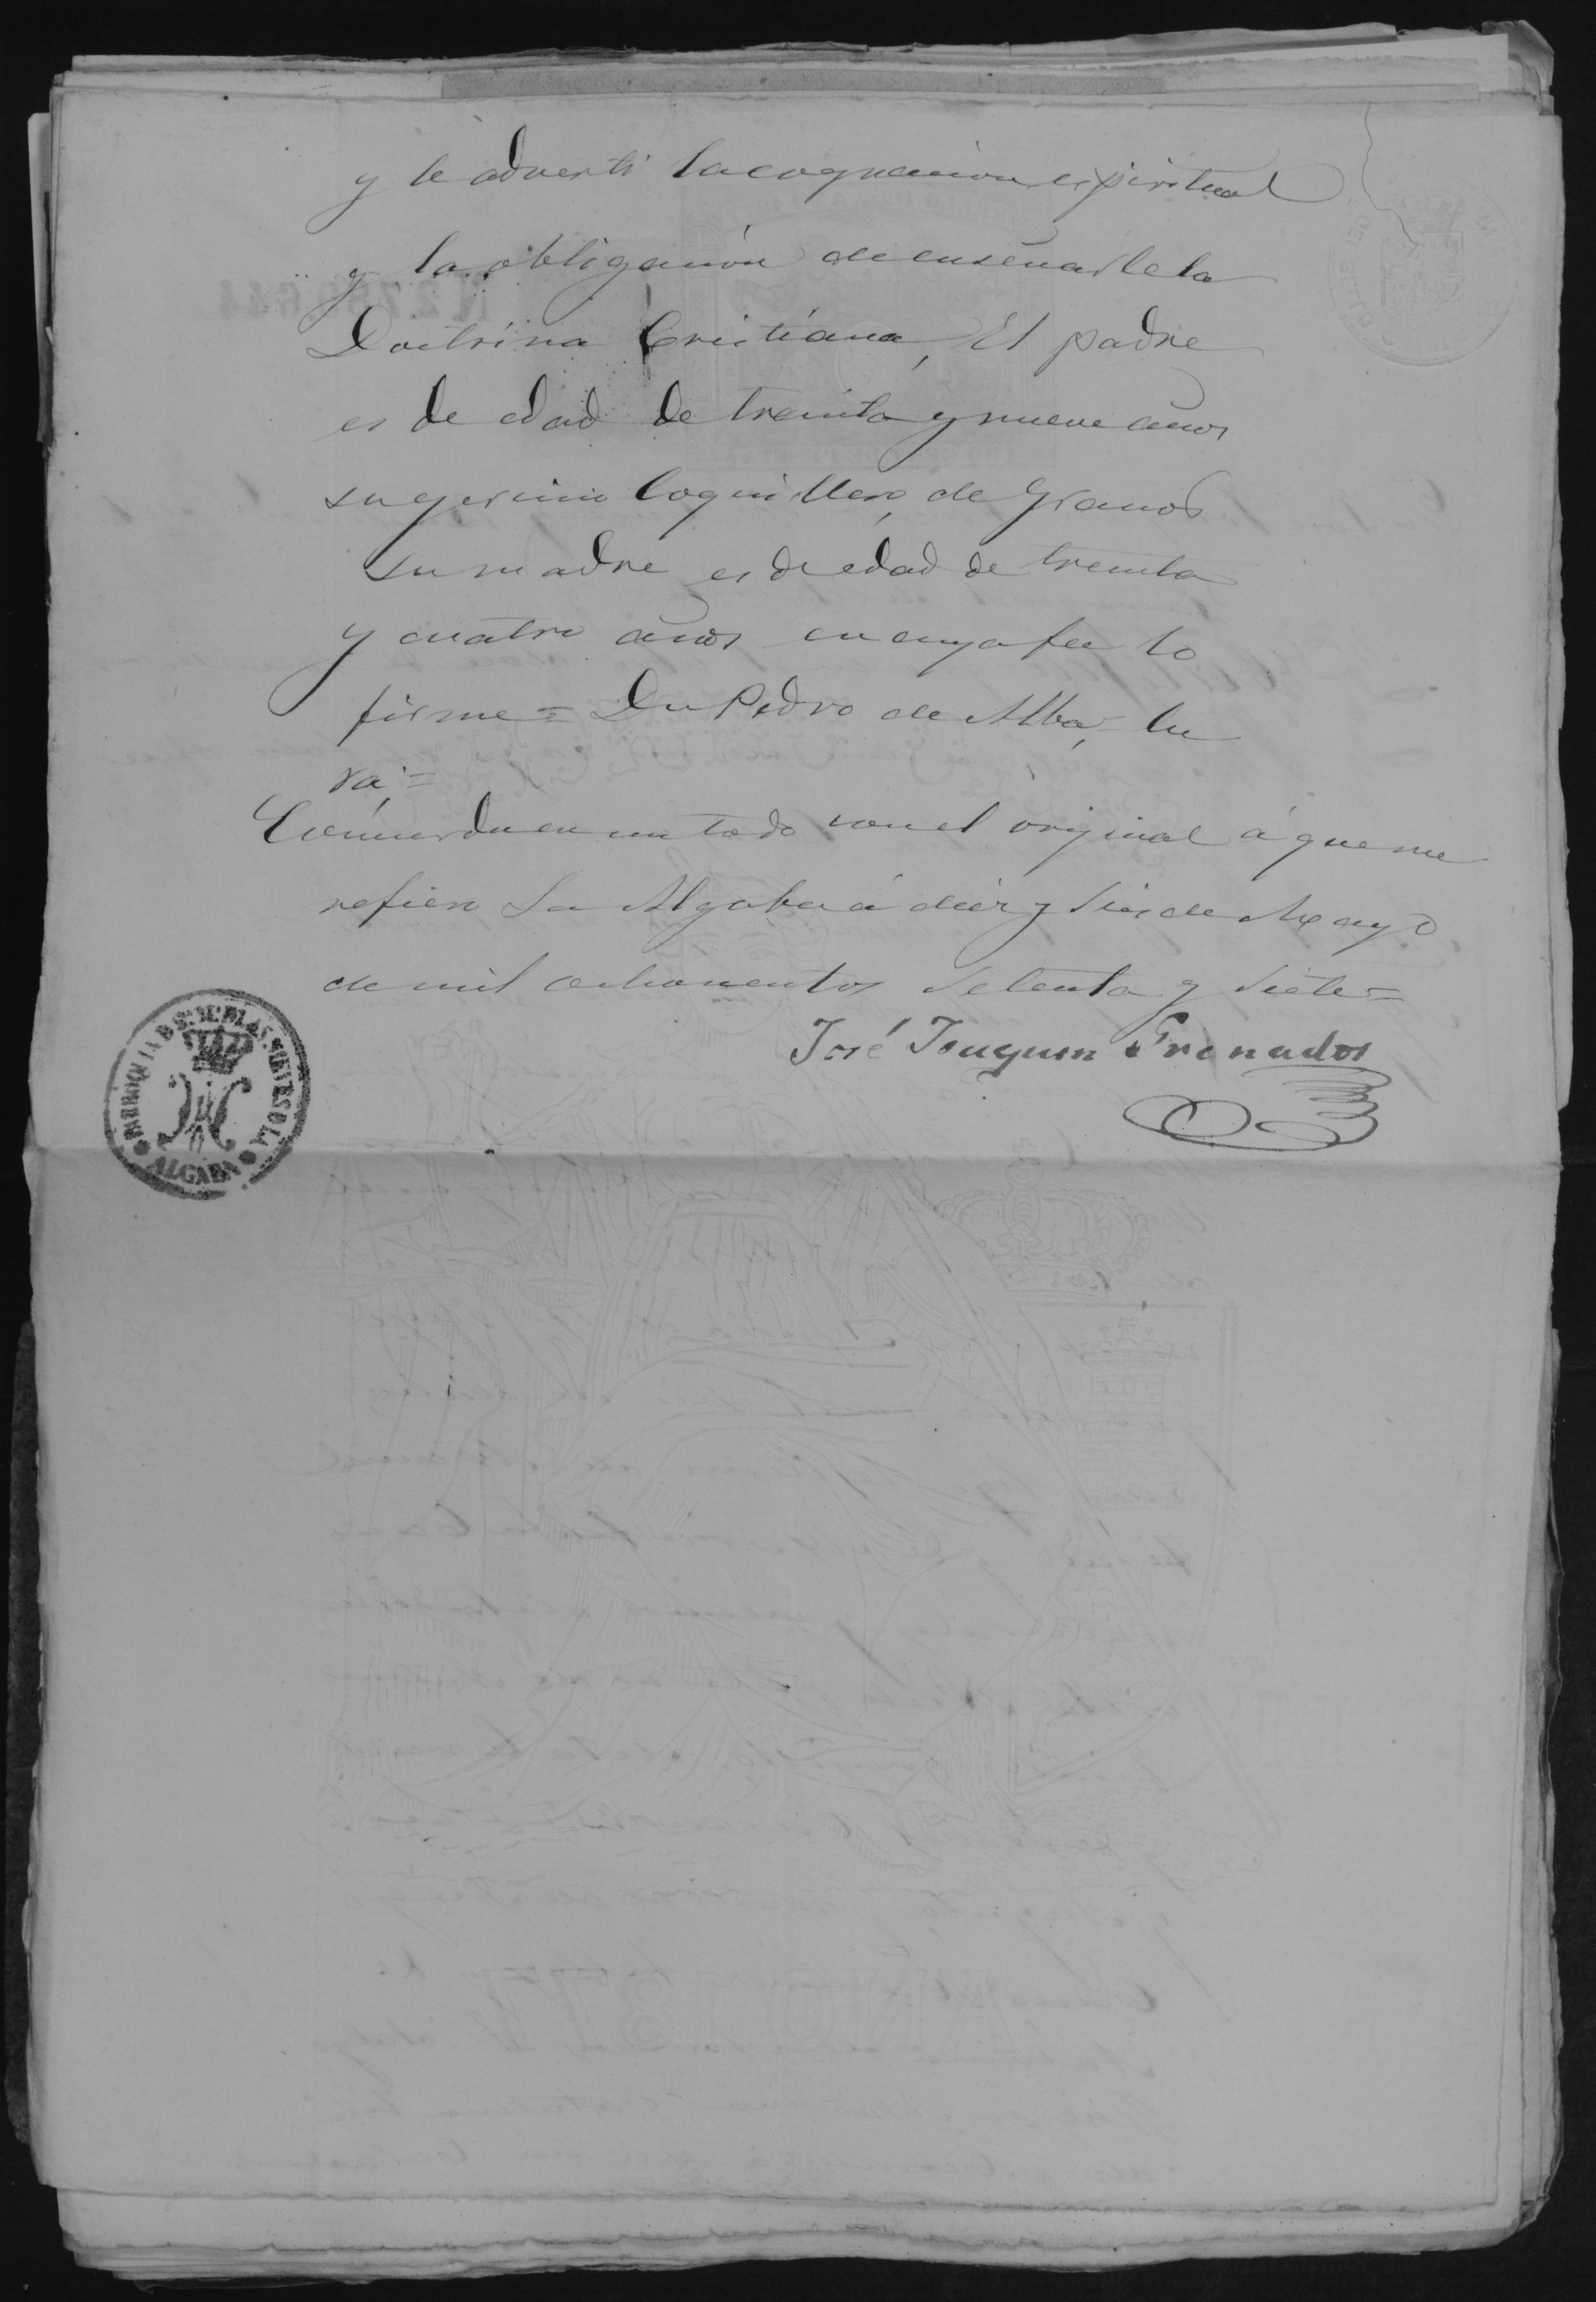 y le advertí la cognacion espiritual
y la obligación de enseñarle la
Doctrina Cristiana, El padre
es de edad de treinta y nueve años
su exercicio Coquillero, de Granos
su madre es de edad de treinta
y cuatro años en cuya fee lo
firme = Dn Pedro de Alba, Cu
ra =
Concuerda en un todo con el original á que me
refiero La Algaba á diez y Seis de Mayo
de mil ochocientos Setenta y Siete =
José Joaquin Granados
PARROQUIA DE
ALGABA